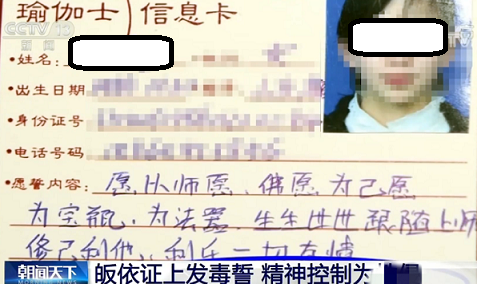 瑜伽士 信息卡
CCTV 13
新闻
•姓名:
•出生日期
•身份证号
•电话号码
•愿誓内容: 愿从师愿、佛愿为己愿
为宝瓶、为法器、生生世世跟随上师
修己利他、利乐一切有情
朝闻天下 皈依证上发毒誓 精神控制为